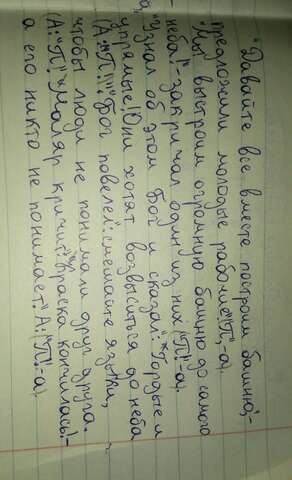 "Давайте все вместе построим башню",-
предложили молодые рабочие ("П",-а).
"Мы выстроим огромную башню до самого
неба!"-закричал один из них. ("П!"-а).
Узнал об этом Бог и сказал: "Гордые и
упрямые! Они хотят возвыситься до неба
(А: "П!". Бог повелел: смешайте языки,
чтобы люди не понимали друг друга.
(А: "П". Маляр кричит: "Краска кончилась!"-
а его никто не понимает." А: ("П!"-а)